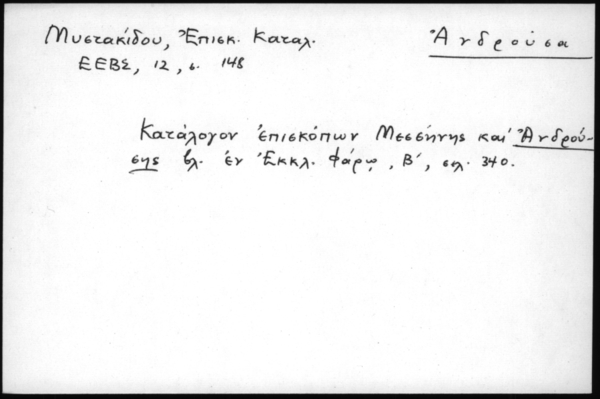 Μυστακίδου, Ἐπισκ. Καταλ.
Ἀνδροῦσα
ΕΕΒΣ, 12, σ. 148
Κατάλογον ἐπισκόπων Μεσσήνης καὶ Ἀνδρού-
σης βλ. ἐν Ἐκκλ. Φάρῳ, Β΄, σελ. 340.